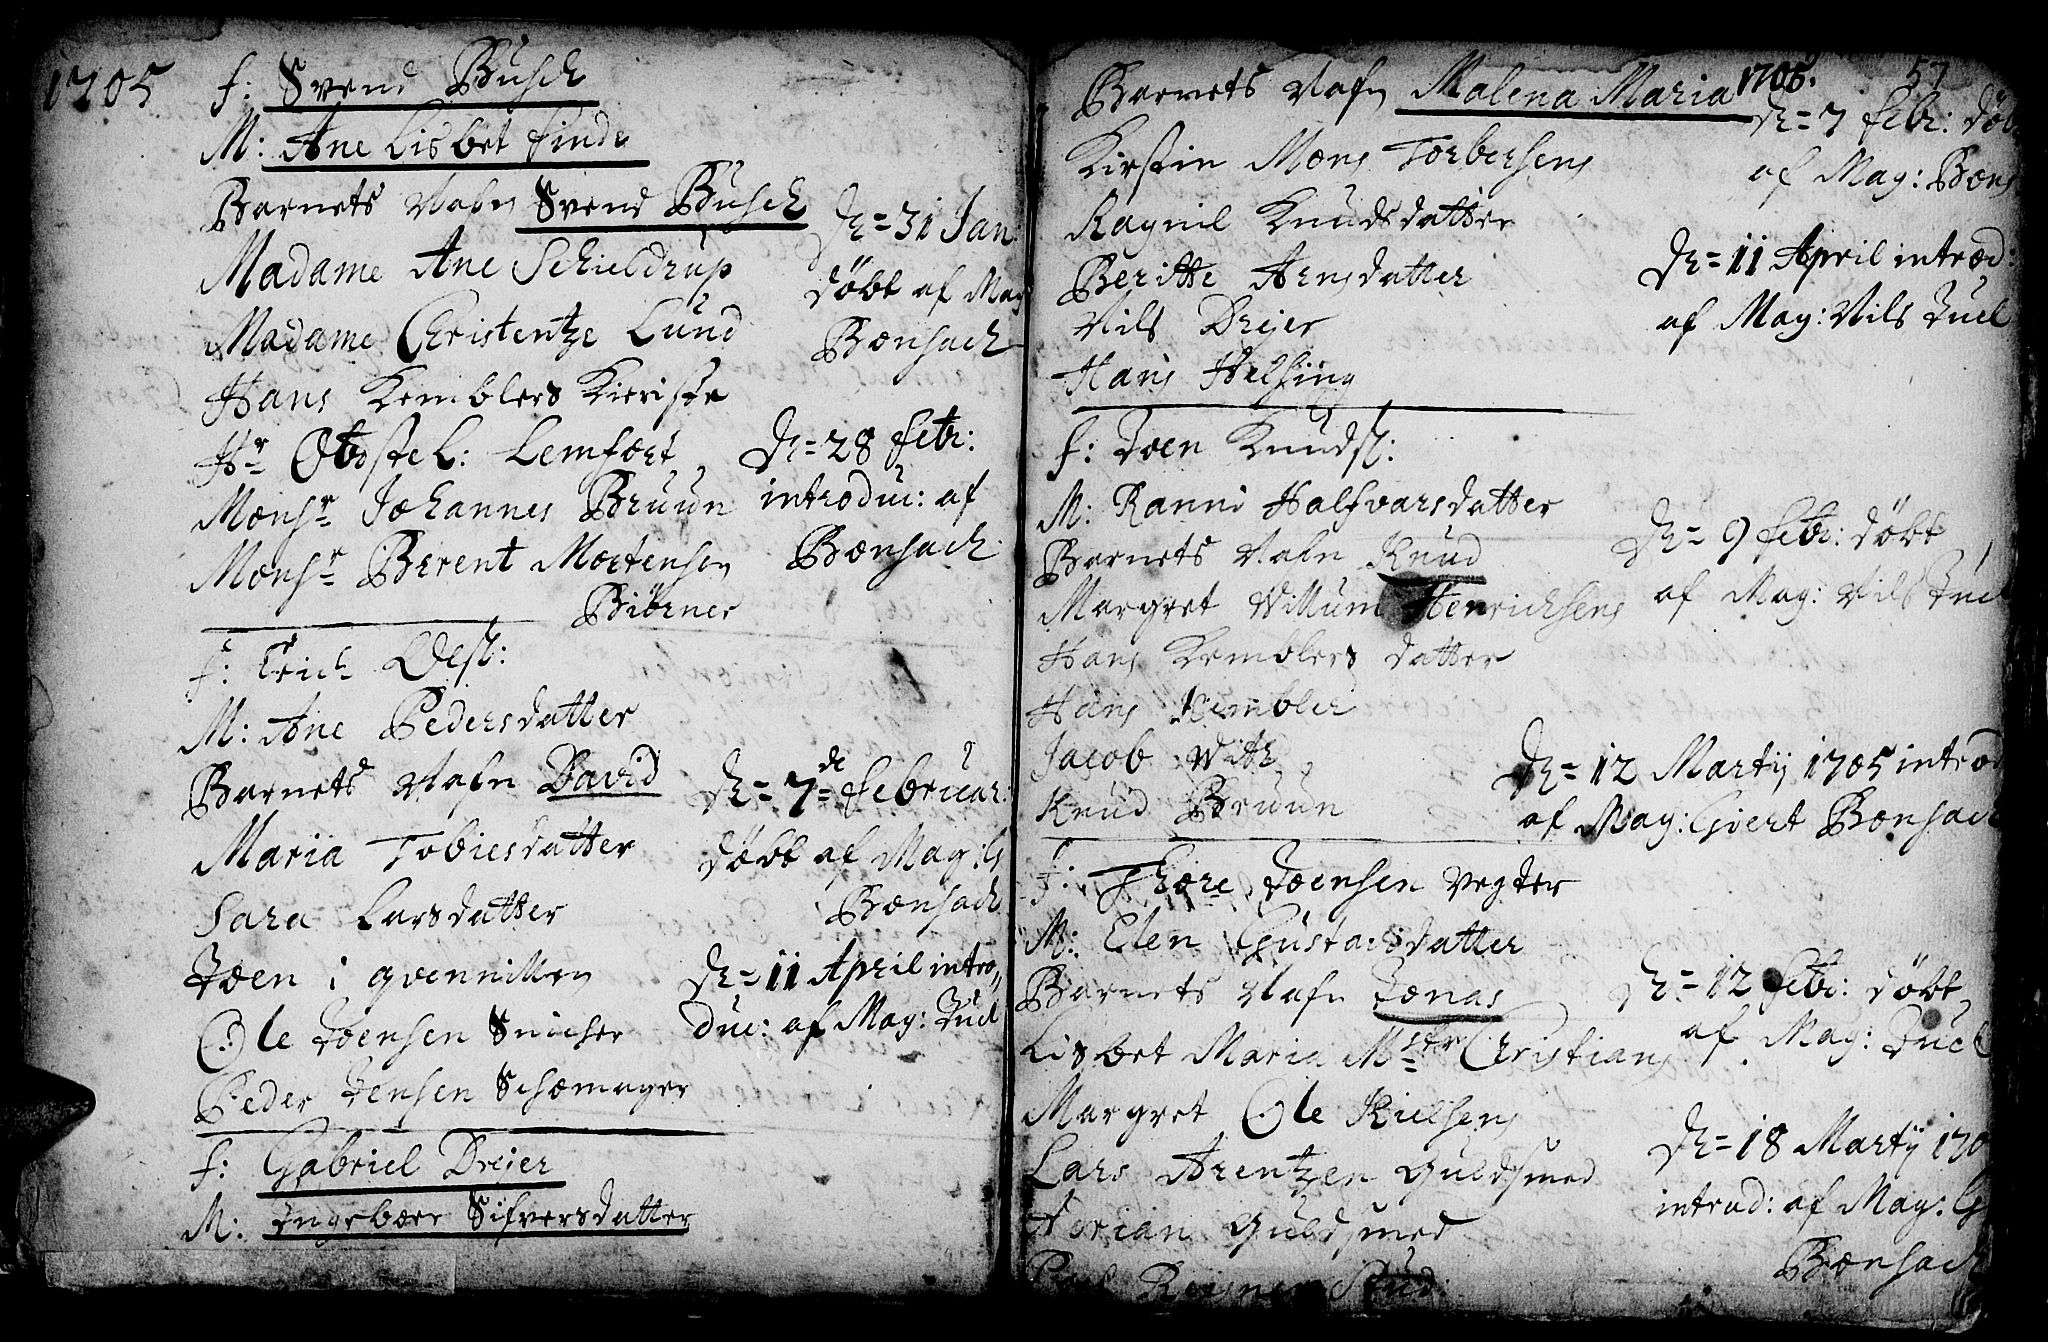 1705
f: Svend Busch
M: Ane Lisbet finde
Barnets Nafn Svend Busch
Madame Ane Schieldrup
Madame Christentze Lund
Hans Kemblers Kieriste
Hr Obrstel: Lemfort
Monsr Johannes Bruun
Monsr Berent Mortensen
Biörner
D = 31 Jan.
döbt af Mag
Bonsach
D = 28 febr:
introduc: af
Bonsach
f: Erich Olesl:
M: Ane Pedersdatter
Barnets Nafn David
Maria Tobiesdatter
Sara Larsdatter
Joen i qvernitten
Ole Joensen Snicher
Peder Jensen Schomager
D = 7de februar:
döbt af Mag: G
Bonsach
D = 11 April intro
duc: af Mag: Juel
f: Gabriel Dreier
M: Ingebor Sifversdatter
1705. 57
Barnets Nafn Malena Maria
Kirstin Mons Torbersens
Ragnil Knudsdatter
Beritte Arnsdatter
Nils Dreier
Hans Helsing
D = 7 febr: döb
af Mag: Bons
D = 11 April introd:
af Mag: Nils Juel
f: Joen Knudsl:
M: Ranni Halfvarsdatter
Barnets Nafn Knud
Margret Willum Henrichsens
Hans Kemblers datter
Hans Kembler
Jacob With
Knud Bruun
D = 9 febr: döbt
af Mag: Nils Juel
D = 12 Martij 1705 introd
af Mag: Gvert Bonsach
f: Thore Joensen Vegter
M: Elen Gustavsdatter
Barnets Nafn Jonas
Lisbet Maria Mster Christians
Margret Ole Nielsens
Lars Arentzen Guldsmed
Dorian Guldsmed
Stud:
D = 12 febr: döbt
af Mag: Juel
D = 18 Martij 170
introd: af Mag: G
Bonsach